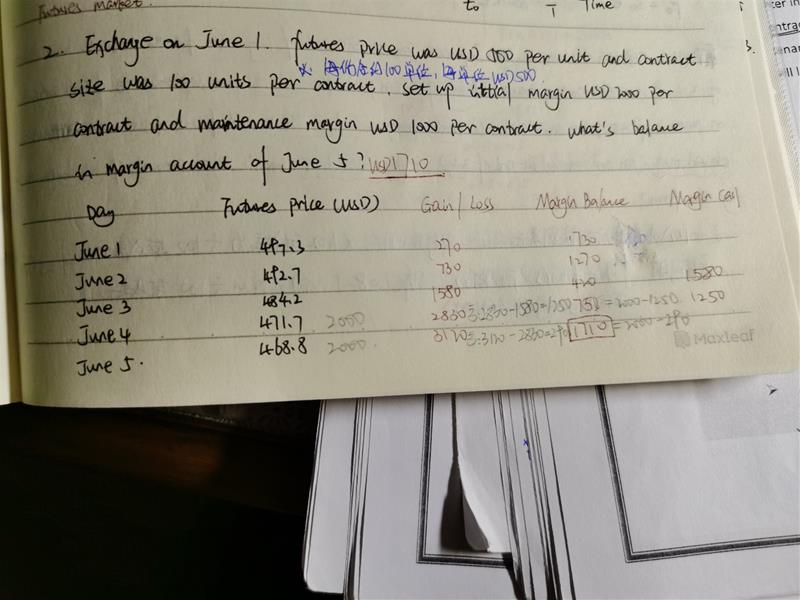 Futures market.
to
T
Time
3.
2. Exchange on June 1. futures price was USD 500 per unit and contract
* 每份合约100单位,每单位USD500.
size was 100 units per contract. set up initial margin USD 2000 per
contract and maintenance margin USD 1000 per contract. what's balance
in margin account of June 5? USD1710
Day Futures price (USD) Gain / Loss Margin Balance Margin Call
June 1 497.3 270 1730
June 2 492.7 730 1270
June 3 484.2 1580 420 1580
June 4 471.7 2000 2830 2830-1580=1250 750 = 2000-1250 1250
June 5. 468.8 2000 3120 3120-2830=290 1710 = 2000-290
Maxleaf